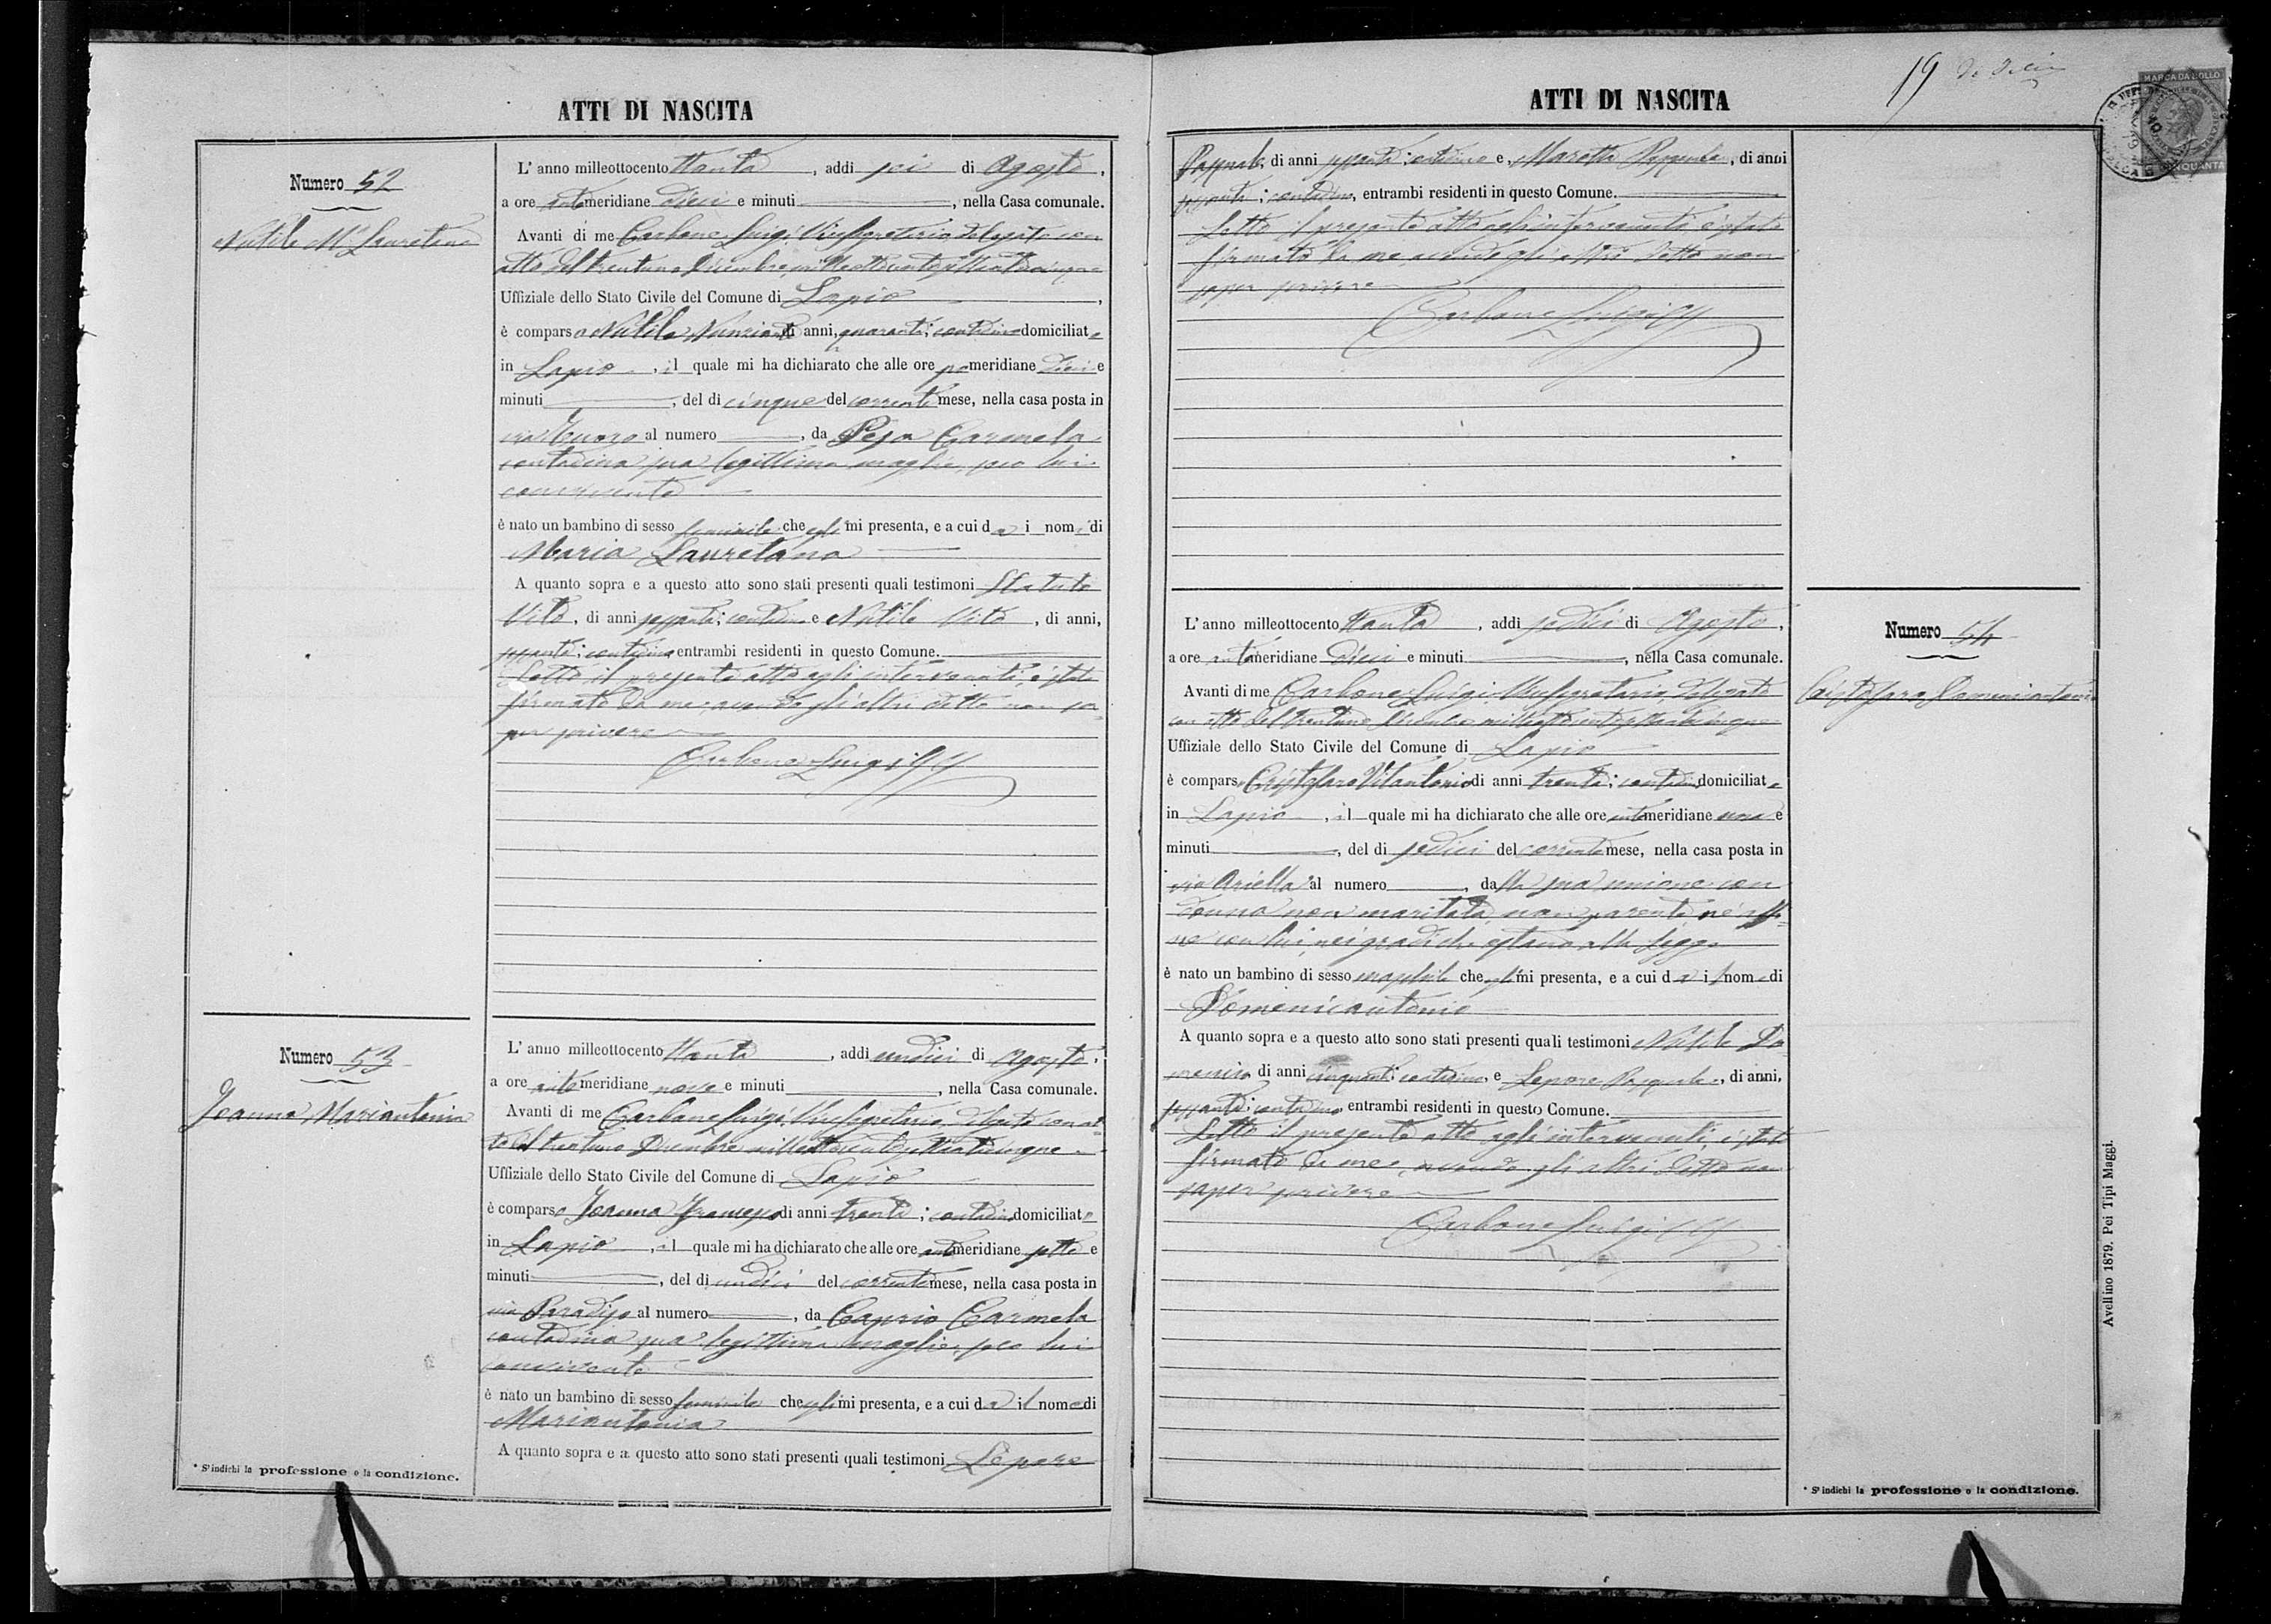 ATTI DI NASCITA
Numero 52
Nutile Mª Lauretana
L'anno milleottocento ttanta, addi sei di Agosto,
a ore antimeridiane dieci e minuti, nella Casa comunale.
Avanti di me Carbone Luigi, Vicesegretario, delegato con
atto del trentuno Dicembre milleottocentosettantacinque
Uffiziale dello Stato Civile del Comune di Lapio,
è comparso Nutile Nunziante di anni, quaranta; contadino domiciliato
in Lapio, il quale mi ha dichiarato che alle ore pomeridiane dieci e
minuti, del di cinque del corrente mese, nella casa posta in
via al numero, da Pesa Carmela
contadina sua legittima moglie, seco lui
convivente
è nato un bambino di sesso feminile che egli mi presenta, e a cui da i nome di
Maria Lauretana
A quanto sopra e a questo atto sono stati presenti quali testimoni Statuto
Vito, di anni sessanta; contadino e Nutile Vito, di anni,
sessanta; contadino entrambi residenti in questo Comune.
Letto il presente atto agli intervenuti, è stato
firmato da me avendo gli altri detto non sa-
per scrivere
Carbone Luigi
Numero 53
Joanna Mariantonia
L'anno milleottocento ttanta, addi undici di Agosto,
a ore antimeridiane nove e minuti, nella Casa comunale.
Avanti di me Carbone Luigi, Vicesegretario, delegato con at-
to del trentuno Dicembre milleottocentosettantacinque
Uffiziale dello Stato Civile del Comune di Lapio
è comparso Joanna Francesco di anni trenta; contadino domiciliato
in Lapio, il quale mi ha dichiarato che alle ore antimeridiane sette e
minuti, del di undici del corrente mese, nella casa posta in
via Paradiso al numero, da Caprio Carmela
contadina sua legittima moglie, seco lui
convivente
è nato un bambino di sesso feminile che egli mi presenta, e a cui da il nome di
Mariantonia
A quanto sopra e a questo atto sono stati presenti quali testimoni Lepore
* S'indichi la professione o la condizione.
ATTI DI NASCITA
19
MARCA DA BOLLO
Pasquale, di anni sessanta; contadino e, Moretta Pasquale, di anni
sessanta; contadino, entrambi residenti in questo Comune.
Letto il presente atto agli intervenuti è stato
firmato da me, avendo gli altri detto non
saper scrivere
Carbone Luigi
Numero 54
Cristofaro Domenicantonio
L'anno milleottocento ttanta, addi sedici di Agosto,
a ore antimeridiane dieci e minuti, nella Casa comunale.
Avanti di me Carbone Luigi, Vicesegretario, delegato
con atto del trentuno Dicembre milleottocentosettantacinque
Uffiziale dello Stato Civile del Comune di Lapio
è comparso Cristofaro Vitantonio di anni trenta; contadino domiciliato
in Lapio, il quale mi ha dichiarato che alle ore antimeridiane una e
minuti, del di sedici del corrente mese, nella casa posta in
via Ariella al numero, dalla sua unione con
donna non maritata, non parente nè affi-
ne con lui, nei gradi che ostano alla legge
è nato un bambino di sesso maschile che egli mi presenta, e a cui da il nome di
Domenicantonio
A quanto sopra e a questo atto sono stati presenti quali testimoni Nutile Do-
menico di anni cinquanta; contadino, e Lepore Pasquale, di anni,
sessanta; contadino, entrambi residenti in questo Comune.
Letto il presente atto agli intervenuti, è stato
firmato da me, avendo gli altri detto non
saper scrivere
Carbone Luigi
* S'indichi la professione o la condizione.
Avellino 1879. Pei Tipi Maggi.